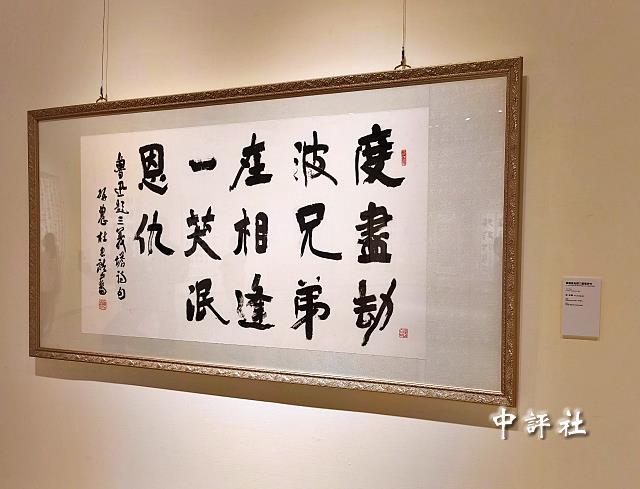 度盡劫
波兄弟
在相逢
一笑泯
恩仇
魯迅題三義塔詩句
研農杜忠誥書
中評社